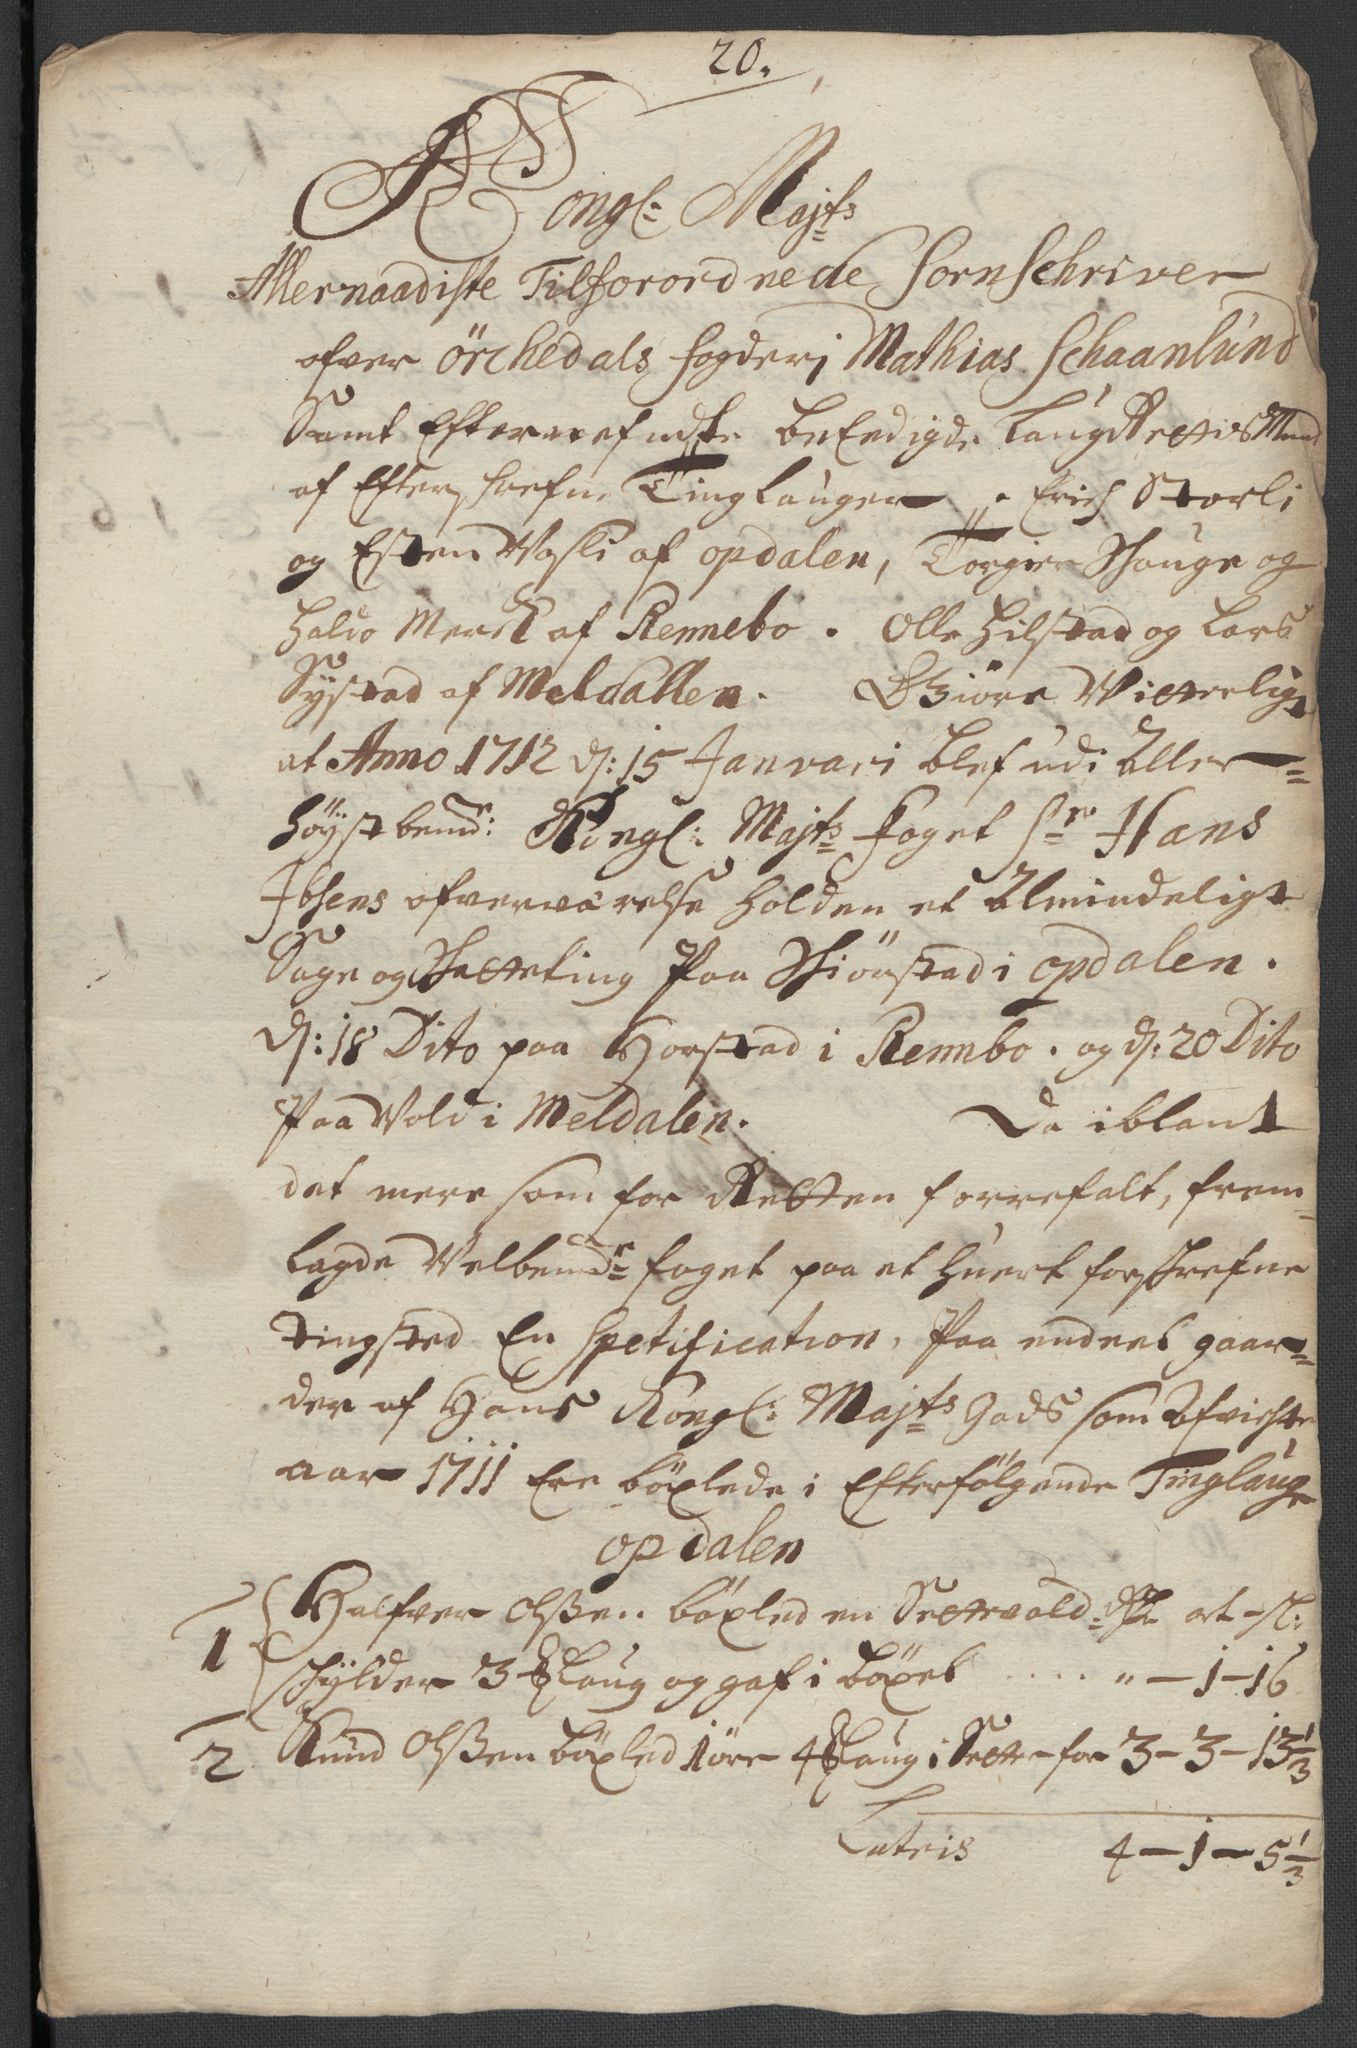 20.
Kongl: Majts
Allernaadiste Tilforordnede Sornschriver
ofver Örchedals fogderi Mathias Schaanlund
Samt Efternefndte beEedigde LaugRettes Mend
af Efterschrefne Tinglauger, Erich Storli
og Esten Vasli af opdalen, Torgier Schauge og
Haldo Merch af Rennebo. Olle Hilstad og Lars
Systad af Meldallen. Giöre Vitterligt
at Anno 1712 d: 15 Januari blef udi Aller=
höystbemte: Kongl: Majts foget Sr Hans
Ibsens ofverværelse holden et Almindeligt
Sage og Schatteting Paa Schiörstad i opdalen.
d: 18 Dito paa Horstad i Rennbo. og d: 20 Dito
Paa Vold i Meldalen. Da iblant
det mere som for Retten forrefalt, frem
lagde Velbemte foget paa et huert forschrefne
tingsted En Spetification, Paa endeel gaar=
der af Hans Kongl: Majts Gods som Afvichte
aar 1711 Ere böxlede i Efterfölgende Tinglauge
opdalen
1 Halfver Olßen böxled en Settevold, Rdr ort s:
schylder 3 laug og gaf i böxel .... " - 1 - 16
2 Knud Olßen böxled 1 öre 4 laug i Sette for 3 - 3 - 13 1/3
Lateris 4 - 1 - 5 1/3